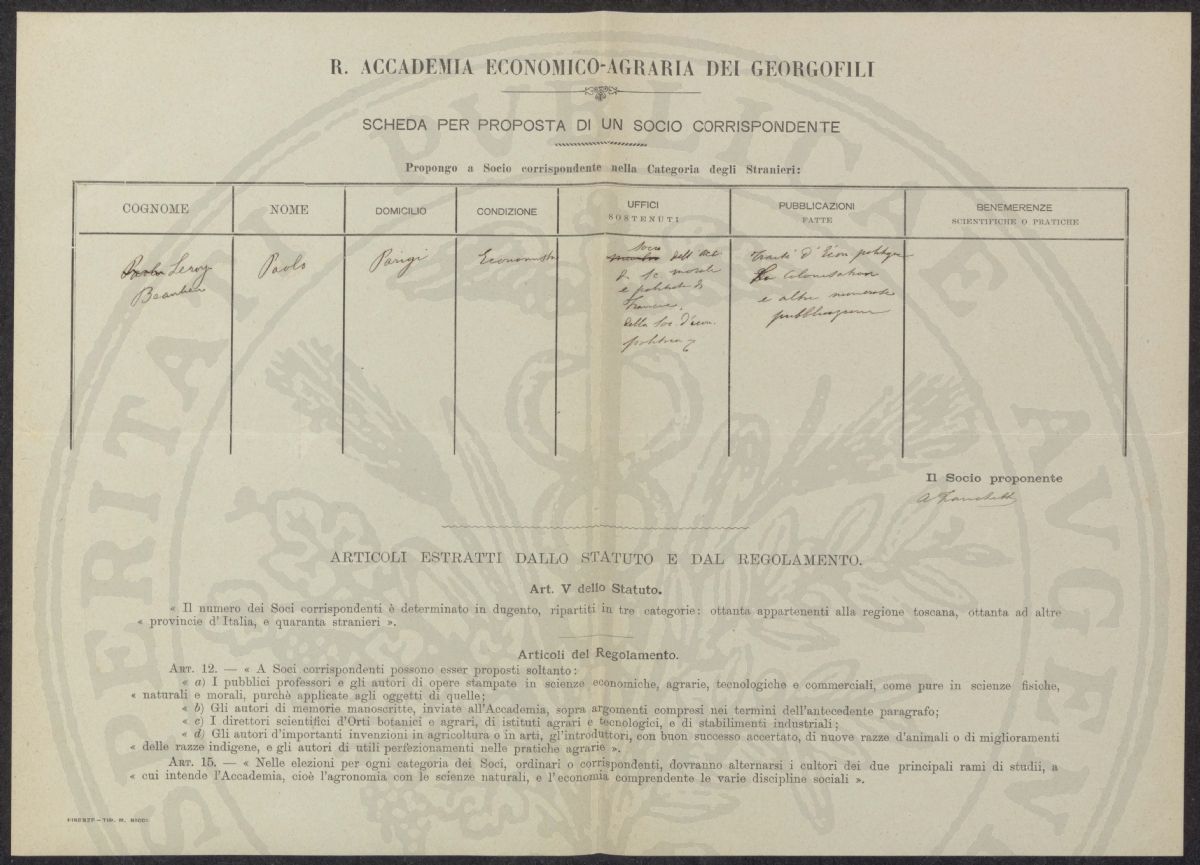 R. ACCADEMIA ECONOMICO-AGRARIA DEI GEORGOFILI
SCHEDA PER PROPOSTA DI UN SOCIO CORRISPONDENTE
Propongo a Socio corrispondente nella Categoria degli Stranieri:
COGNOME NOME DOMICILIO CONDIZIONE UFFICI SOSTENUTI PUBBLICAZIONI FATTE BENEMERENZE SCIENTIFICHE O PRATICHE
Leroy
Beaulieu
Paolo
Parigi
Economista
Socio
membro dell'
di sc. morali
e politiche di
Francia,
della Soc. d'econ.
politica
Traité d'Écon politique
La Colonisation
e altre numerose
pubblicazioni
Il Socio proponente
ARTICOLI ESTRATTI DALLO STATUTO E DAL REGOLAMENTO.
Art. V dello Statuto.
« Il numero dei Soci corrispondenti è determinato in dugento, ripartiti in tre categorie: ottanta appartenenti alla regione toscana, ottanta ad altre
« provincie d'Italia, e quaranta stranieri ».
Articoli del Regolamento.
ART. 12. — « A Soci corrispondenti possono esser proposti soltanto:
« a) I pubblici professori e gli autori di opere stampate in scienze economiche, agrarie, tecnologiche e commerciali, come pure in scienze fisiche,
« naturali e morali, purchè applicate agli oggetti di quelle;
« b) Gli autori di memorie manoscritte, inviate all'Accademia, sopra argomenti compresi nei termini dell'antecedente paragrafo;
« c) I direttori scientifici d'Orti botanici e agrari, di istituti agrari e tecnologici, e di stabilimenti industriali;
« d) Gli autori d'importanti invenzioni in agricoltura o in arti, gl'introduttori, con buon successo accertato, di nuove razze d'animali o di miglioramenti
« delle razze indigene, e gli autori di utili perfezionamenti nelle pratiche agrarie ».
ART. 15. — « Nelle elezioni per ogni categoria dei Soci, ordinari o corrispondenti, dovranno alternarsi i cultori dei due principali rami di studii, a
« cui intende l'Accademia, cioè l'agronomia con le scienze naturali, e l'economia comprendente le varie discipline sociali ».
FIRENZE - TIP. M. RICCI
PROSPERITATI PUBLICAE AUGENDAE